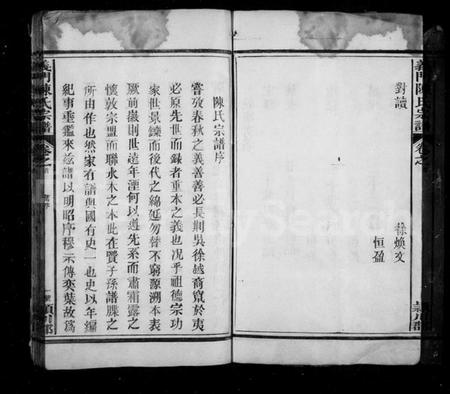 義門陳氏宗譜
卷之一
對讀
煥文
恒盈
潁川郡
陳氏宗譜序
嘗攷春秋之義善善必長則吳徐越裔竄於夷
必原先世而錄者重本之義也况乎祖德宗功
家世景鑠而後代之綿延勿替不窮源溯本表
厥前徽則世遠年湮何以遡先系而肅霜露之
懷敦宗盟而聯水木之本此在賢子孫譜牒之
所由作也然家有譜與國有史一也史以年編
紀事垂鑑來茲譜以明昭序穆示傳奕葉故為
義門陳氏宗譜
卷之一
潁川郡